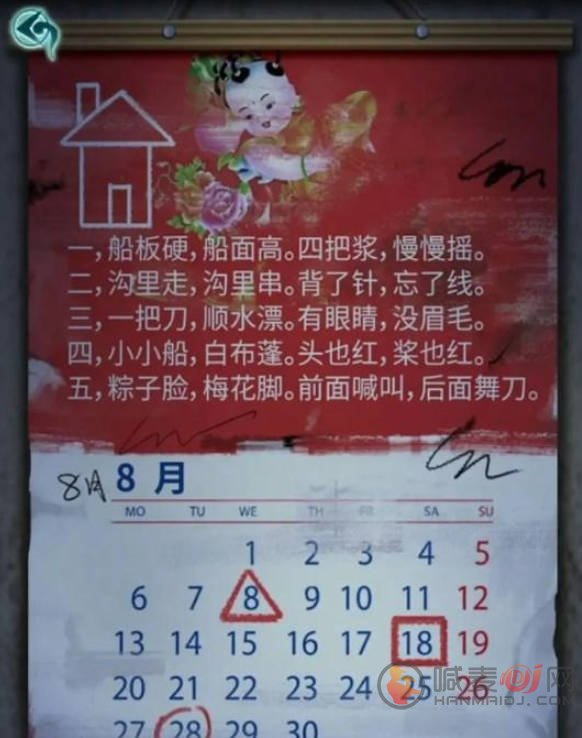 一,船板硬,船面高。四把浆,慢慢摇。
二,沟里走,沟里串。背了针,忘了线。
三,一把刀,顺水漂。有眼睛,没眉毛。
四,小小船,白布蓬。头也红,桨也红。
五,粽子脸,梅花脚。前面喊叫,后面舞刀。
8月 8 月
MO TU WE TH FR SA SU
1 2 3 4 5
6 7 8 9 10 11 12
13 14 15 16 17 18 19
20 21 22 23 24 25 26
27 28 29 30
喊麦DJ网
HANMAIDJ.COM